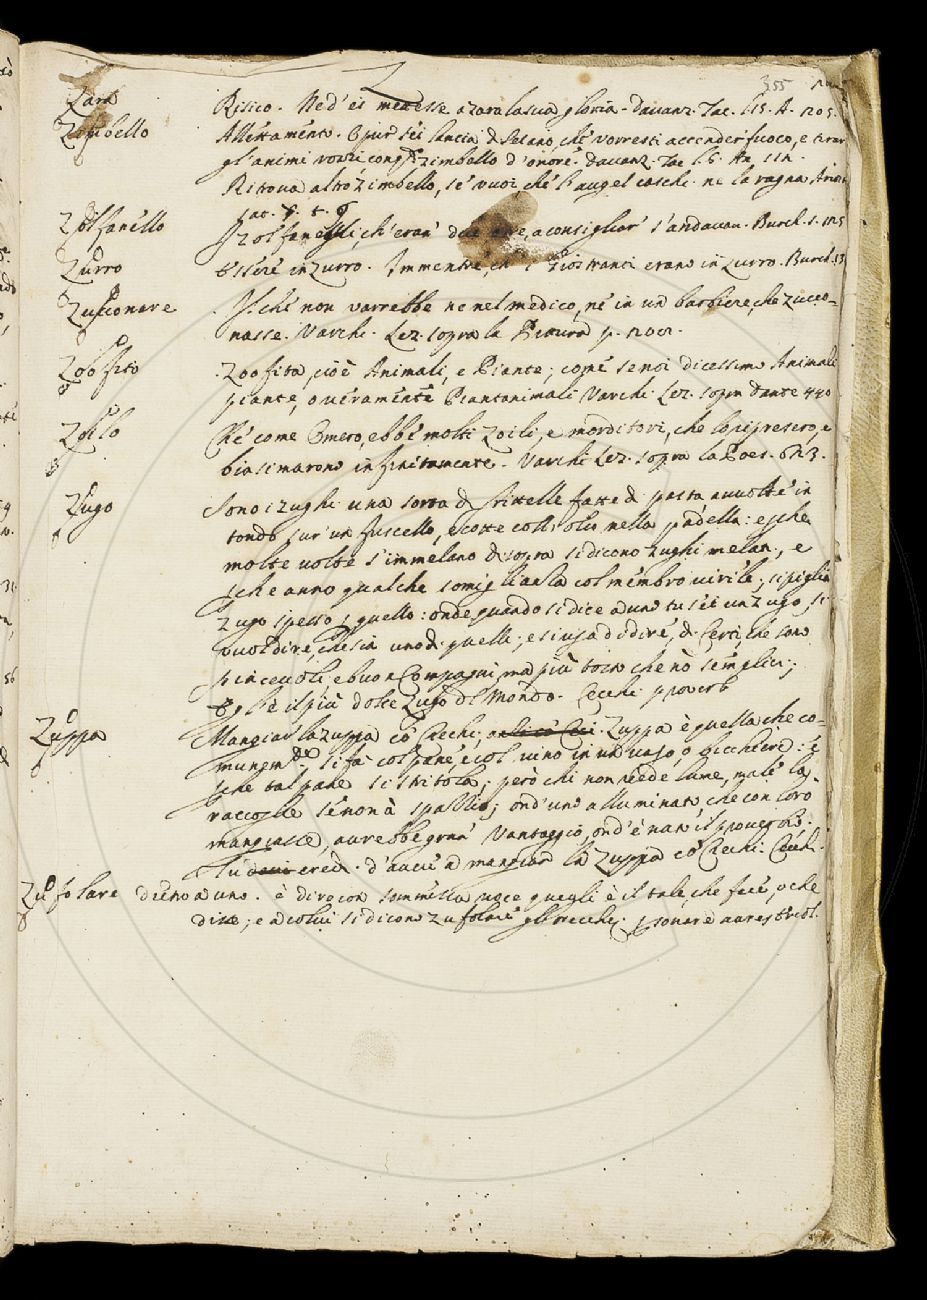 Z
355
Zara Risico. Ned' ei mettesse a zara la sua gloria. Davanz. Tac. l. 15. A. 205.
Zimbello Allettamento. O pur sei lancia di Seiano, che vorresti accender fuoco, e tirar
gl'animi rozzi con q.to zimbello d'onore. Davanz. Tac l. 6. An. 112.
Ritrova altro zimbello, se vuoi che l'augel caschi ne la ragna Ariost.
sat.
Zolfanello Zolfanegli, ch'eran' due are, a consigliar' s'andavan. Burch. 1. 125
Zurro Essere in zurro. Immentre, che i Giostranti erano in zurro. Burch. 13
Zucconare Il che non varrebbe ne nel medico, ne in un barbiere, che zucco-
nasse. Varchi. Lez. sopra la Pittura p. 202.
Zoofito Zoofita, cioè Animali, e Piante; come se noi dicessimo Animali
piante, o veramente Piantanimali Varchi Lez. sopra Dante 440
Zoilo Che come Omero, ebbe molti Zoili, e morditori, che lo ripresero, e
biasimarono infinitamente. Varchi Lez. sopra la Poes. 623.
Zugo Sono i zughi una sorta di frittelle fatte di pasta avvolte in
tondo sur' un fuscello, e cotte coll'olio nella padella: e perche
molte volte s'immelano di sopra si dicono Zughi melati, e
perche anno qualche somiglianza col membro virile, si piglia
Zugo spesso p quello: onde quando si dice ad uno tu sei un Zugo, si
vuol dire, che sia uno di quelli; e si usa di dire, di Certi, che sono
piacevoli e buon Compagni, ma più tosto che nò semplici;
Egli è il più dolce Zugo del Mondo. Cecchi pproverb
Zuppa Mangiar la zuppa cò Ciechi, Zuppa è quella che co-
munem.te si fà col pane, e col vino in un vaso, o bicchiere: e
perche tal pane si stritola, però chi non vede lume, male lo
raccoglie se non à spasso; ond' uno alluminato, che con loro
mangiasse, avrebbe gran' Vantaggio, ond' è nato il proverbio:
Tu credi d'avere a mangiar la Zuppa cò Ciechi. Cecchi.
Zufolare dietro a uno. è dire con sommessa voce quegli è il tale, che fece, o che
disse; e a colui si dicono zufolare gl'orecchi.